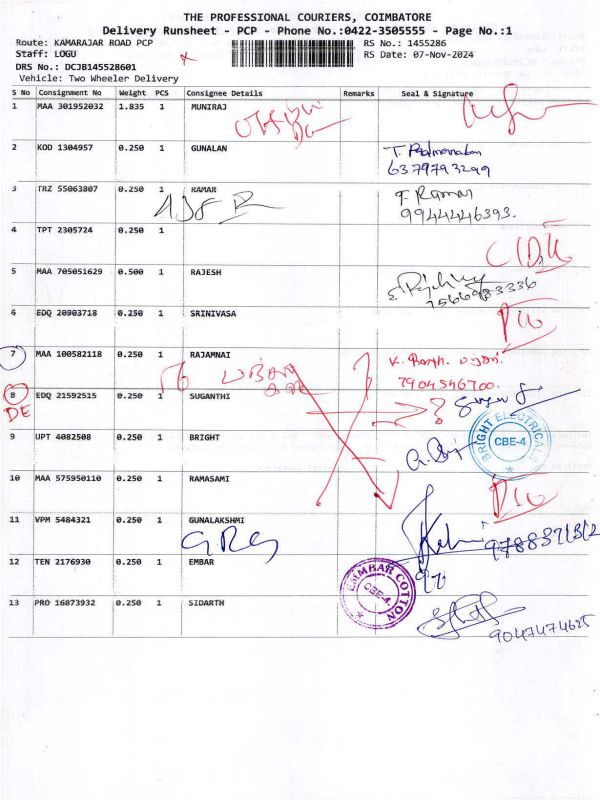 THE PROFESSIONAL COURIERS, COIMBATORE
Delivery Runsheet - PCP - Phone No.:0422-3505555 - Page No.:1
Route: KAMARAJAR ROAD PCP RS No.: 1455286
Staff: LOGU RS Date: 07-Nov-2024
DRS No.: DCJB145528601
Vehicle: Two Wheeler Delivery
S No Consignment No Weight PCS Consignee Details Remarks Seal & Signature
1 MAA 301952032 1.835 1 MUNIRAJ
2 KOD 1304957 0.250 1 GUNALAN
6379793299
3 TRZ 55063807 0.250 1 RAMAR
T. Ramar
9944446393.
4 TPT 2305724 0.250 1
5 MAA 705051629 0.500 1 RAJESH
7566983336
6 EDQ 20903718 0.250 1 SRINIVASA
7 MAA 100582118 0.250 1 RAJAMNAI
7904546700.
8 EDQ 21592515 0.250 1 SUGANTHI
DE ?
9 UPT 4082508 0.250 1 BRIGHT
BRIGHT ELECTRICALS
CBE-4
10 MAA 575950110 0.250 1 RAMASAMI
11 VPM 5484321 0.250 1 GUNALAKSHMI
12 TEN 2176930 0.250 1 EMBAR
EMMBAR COTTON
CBE-4.
13 PRO 16873932 0.250 1 SIDARTH
9047474625